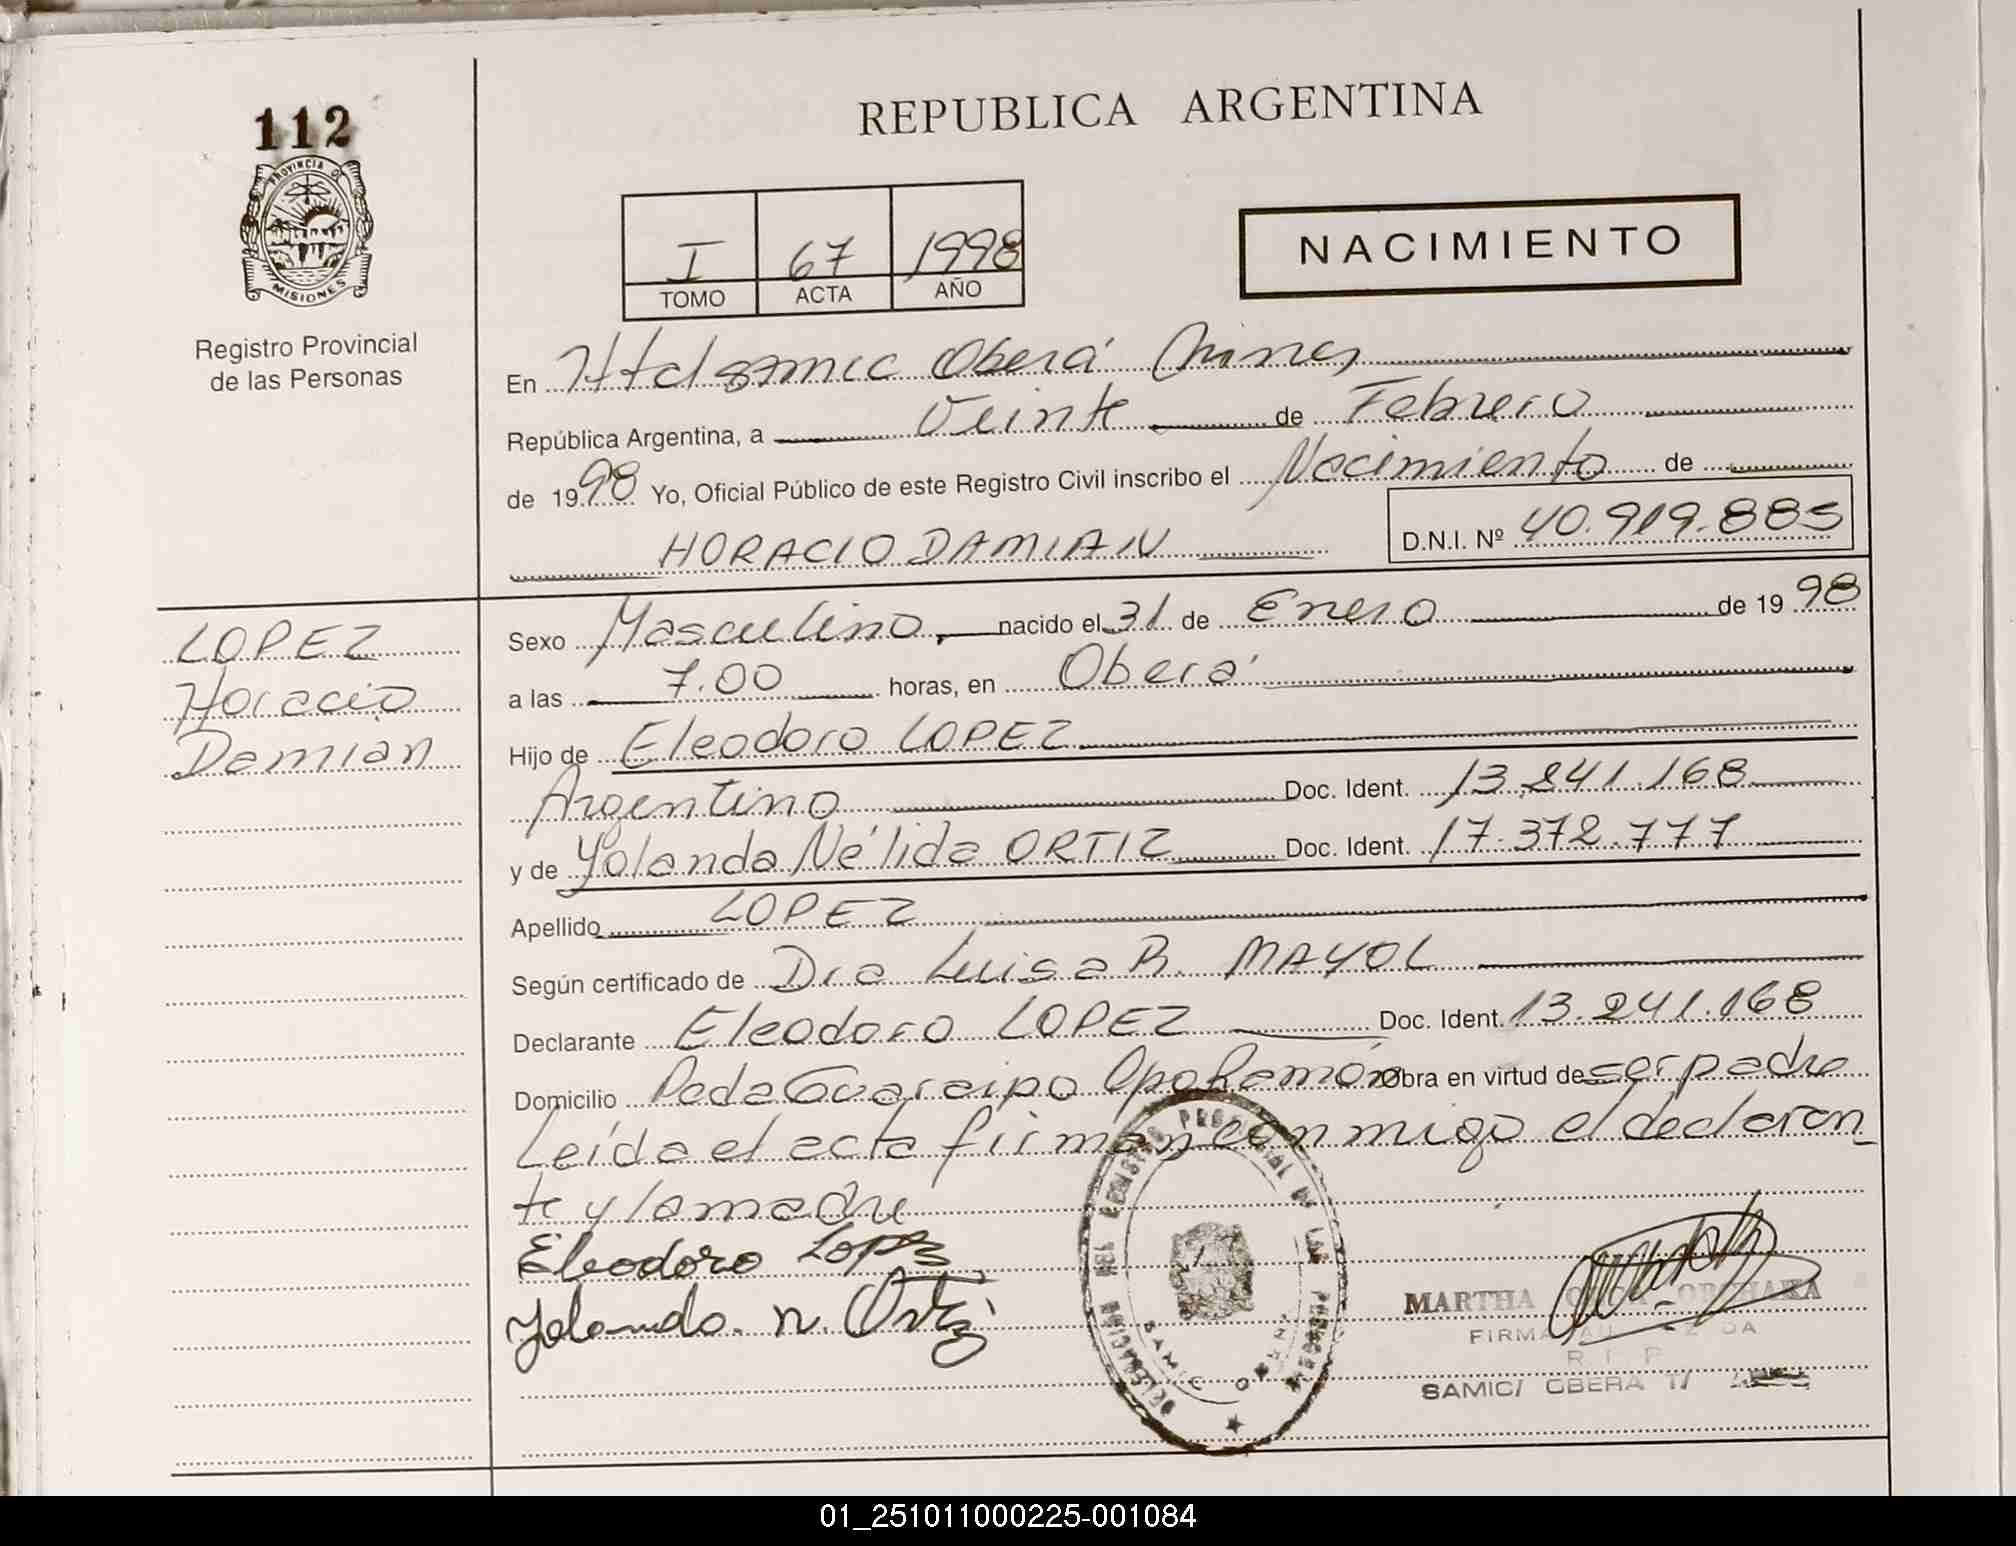 112
PROVINCIA DE
MISIONES
Registro Provincial
de las Personas
REPUBLICA ARGENTINA
I 67 1998
TOMO ACTA AÑO
NACIMIENTO
En Htal samic Oberá Mnes
República Argentina, a Veinte de Febrero
de 1998 Yo, Oficial Público de este Registro Civil inscribo el Nacimiento de
HORACIO DAMIAN D.N.I. Nº 40.919.885
LOPEZ
Horacio
Damian
Sexo Masculino, nacido el 31 de Enero de 1998
a las 7.00 horas, en Oberá
Hijo de Eleodoro LOPEZ
Argentino Doc. Ident. 13.241.168
y de Yolanda Nélida ORTIZ Doc. Ident. 17.372.777
Apellido LOPEZ
Según certificado de Dra Luisa R. MAYOL
Declarante Eleodoro LOPEZ Doc. Ident. 13.241.168
Domicilio Pda Guaraipo Cpo Ramón Obra en virtud de ser padre
Leída el acta firman conmigo el declaran_
te y la madre
Eleodoro Lopez
Yolanda. n. Ortiz
DELEGACION REGISTRO PROVINCIAL DE LAS PERSONAS
SAMIC OBERA
MARTHA
FIRMA AUTORIZADA
R.P.P.
SAMIC/ OBERA
01_251011000225-001084